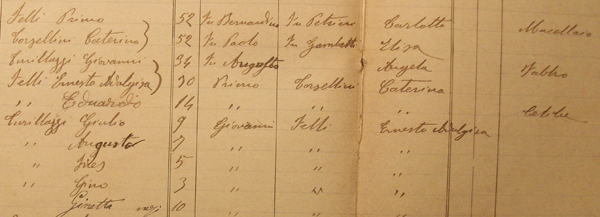 Felli Primo 52 fu Bernardino fu Petroni Carlotta Macellaio
Corsellini Caterina 52 fu Paolo fu Gambatti Elisa
Turillazzi Giovanni 34 fu Augusto Angela Fabbro
Felli Ernesta Adalgisa 30 Primo Corsellini Caterina
" Edoardo 14 " " "
Turillazzi Giulio 9 Giovanni Felli Ernesta Adalgisa
" Augusto 7 " " "
" 5 " " "
" Gino 3 " " "
Ginetta 10 " " "